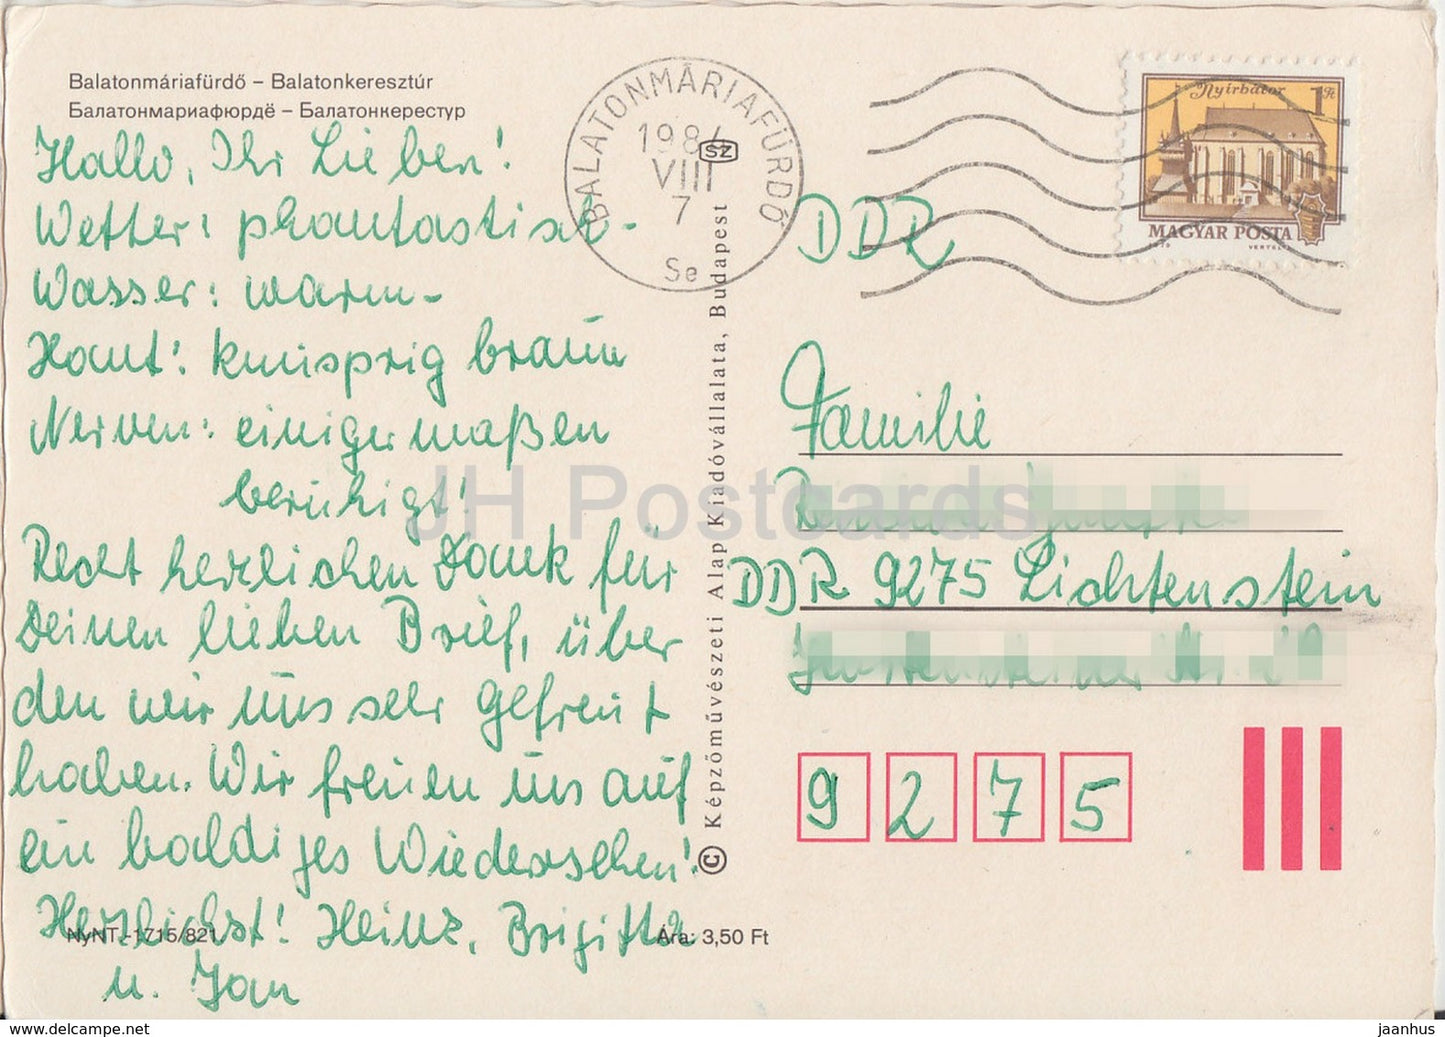 Balatonmáriafürdő – Balatonkeresztúr
Балатонмариафюрдё – Балатонкерестур
Hallo, Ihr Lieben!
Wetter: phantastisch-
Wasser: warm-
Haut: knusprig braun
Nerven: einigermaßen
beruhigt!
Recht herzlichen Dank für
Deinen lieben Brief, über
den wir uns sehr gefreut
haben. Wir freuen uns auf
ein baldiges Wiedersehen!
Herzlichst! Heinz, Brigitta
u. Jan
NyNT.-1715/821
Ára: 3,50 Ft
© Képzőművészeti Alap Kiadóvállalata, Budapest
BALATONMÁRIAFÜRDŐ
1984
SZ
VIII
7
Se
Nyírbátor 1Ft
MAGYAR POSTA
DDR
Familie
DDR 9275 Lichtenstein
9 2 7 5
JH Postcards
www.delcampe.net
jaanhus